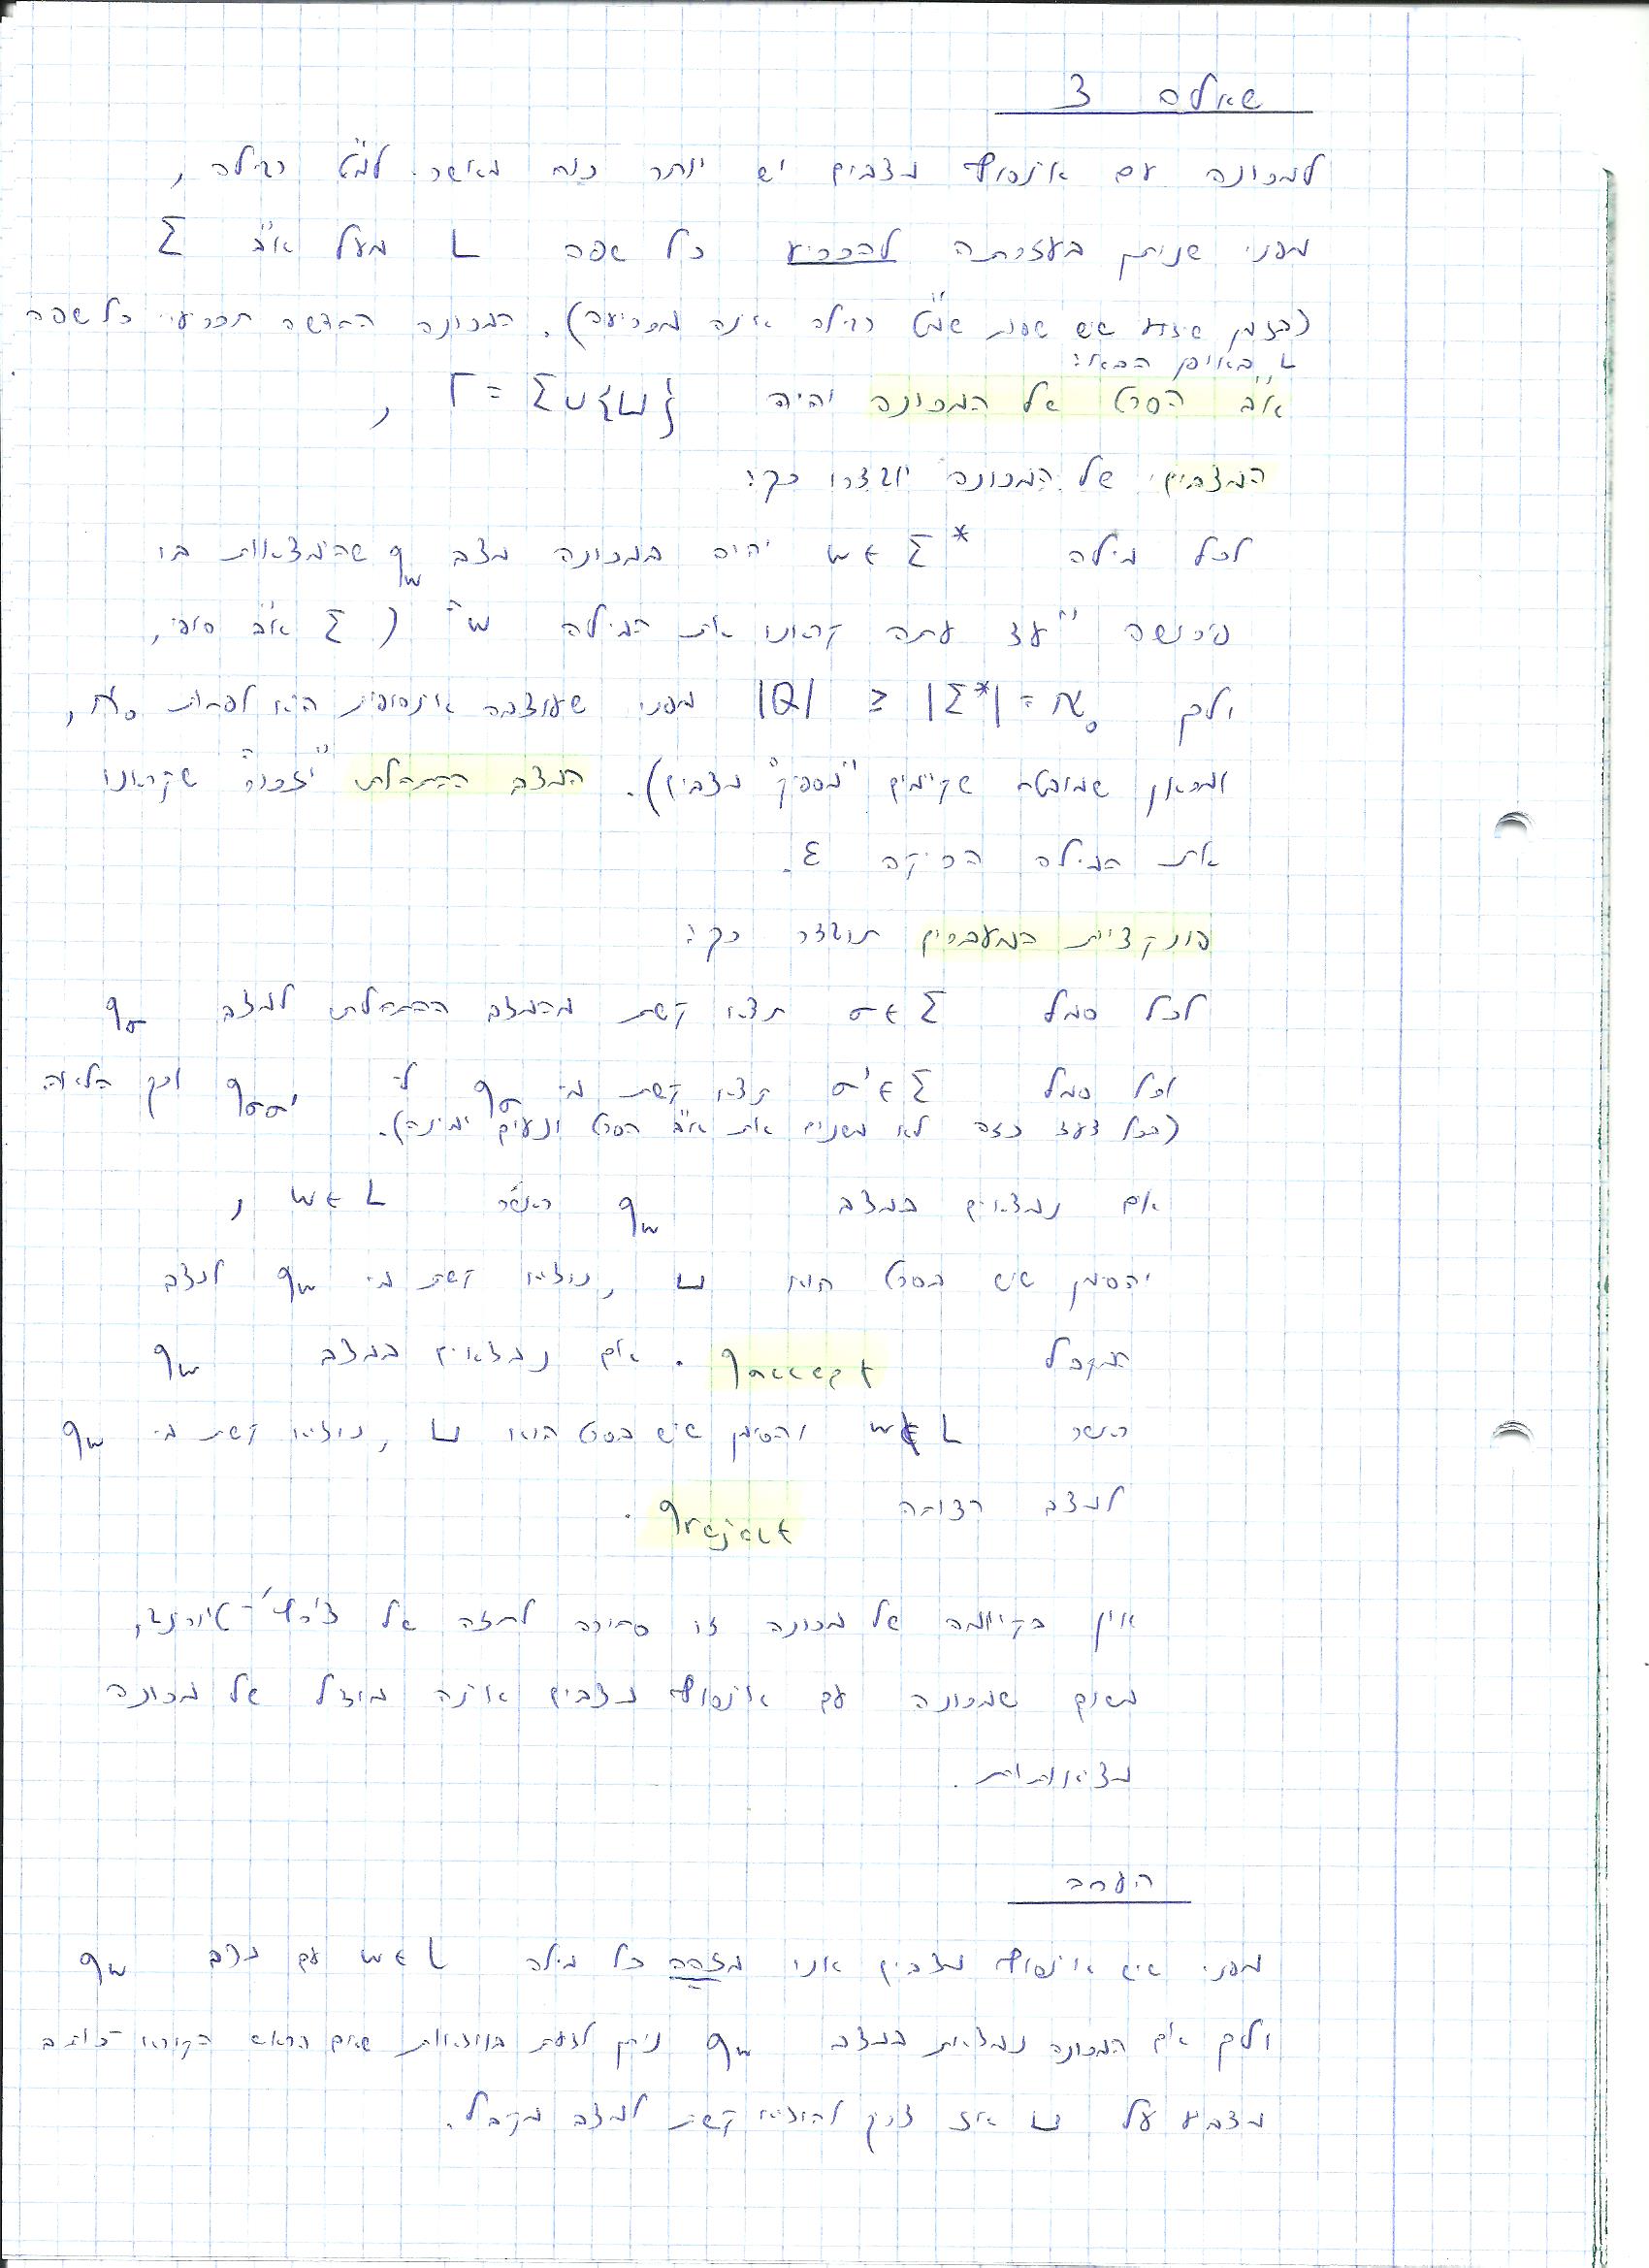 שאלה 3
למכונה עם אינסוף מצבים יש יותר כוח מאשר למ"ט רגילה,
מפני שניתן בעזרתה להכריע כל שפה L מעל א"ב Σ
(בזמן שידוע שיש שפות שמ"ט רגילה אינה מכריעה). המכונה החדשה תכריע כל שפה
L באופן הבא:
א"ב הסרט של המכונה יהיה Γ = Σ∪{⊔} ,
המצבים של המכונה יוגדרו כך:
לכל מילה w∈Σ* יהיה במכונה מצב q_w שהימצאות בו
פירושה "עד עתה קראנו את המילה w" (Σ א"ב סופי,
ולכן |Q| ≥ |Σ*| = ℵ₀ מפני שעוצמה אינסופית היא לפחות ℵ₀,
ומכאן שמובטח שקיימים "מספיק" מצבים). המצב ההתחלתי "יזכור" שקראנו
את המילה הריקה ε.
פונקציית המעברים תוגדר כך:
לכל סמל σ∈Σ תצא קשת מהמצב ההתחלתי למצב q_σ
וכל סמל σ'∈Σ תצא קשת מ- q_σ ל- q_σσ' וכך הלאה
(בכל צעד כזה לא משנים את א"ב הסרט ונעים ימינה).
אם נמצאים במצב q_w כאשר w∈L ,
והסימן שיש בסרט הוא ⊔ , נוציא קשת מ- q_w למצב
מקבל q_accept . אם נמצאים במצב q_w
כאשר w∉L והסימן שיש בסרט הוא ⊔ , נוציא קשת מ- q_w
למצב דוחה q_reject .
אין בקיומה של מכונה זו סתירה לתזה של צ'רץ'-טיורינג,
משום שמכונה עם אינסוף מצבים אינה מודל של מכונה
מציאותית.
הערה
מפני שיש אינסוף מצבים אני מזהה כל מילה w∈L עם מצב q_w
ולכן אם המכונה נמצאת במצב q_w ניתן לדעת בוודאות שאם הראש הקורא-כותב
מצביע על ⊔ אז צריך להוציא קשת למצב מקבל.